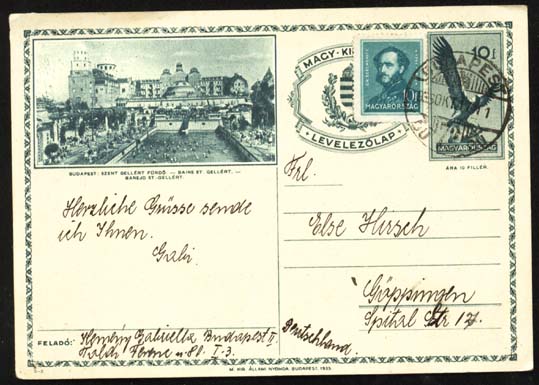 BUDAPEST: SZENT GELLÉRT FÜRDŐ. — BAINS ST. GELLÉRT. —
BANEJO ST.-GELLÉRT.
MAGY. KIR.
LEVELEZŐLAP.
10f
MAGYARORSZÁG
10 f
BUDAPEST
MAGYARORSZÁG
ÁRA 10 FILLÉR.
Herzliche Grüsse sende
ich Ihnen.
Gabi.
Frl.
Else Hirsch
Göppingen
Spital Str 17.
Deutschland.
FELADÓ: Gabriella Budapest II
Ferenc u. 80. I. 3.
M. KIR. ÁLLAMI NYOMDA. BUDAPEST. 1933.